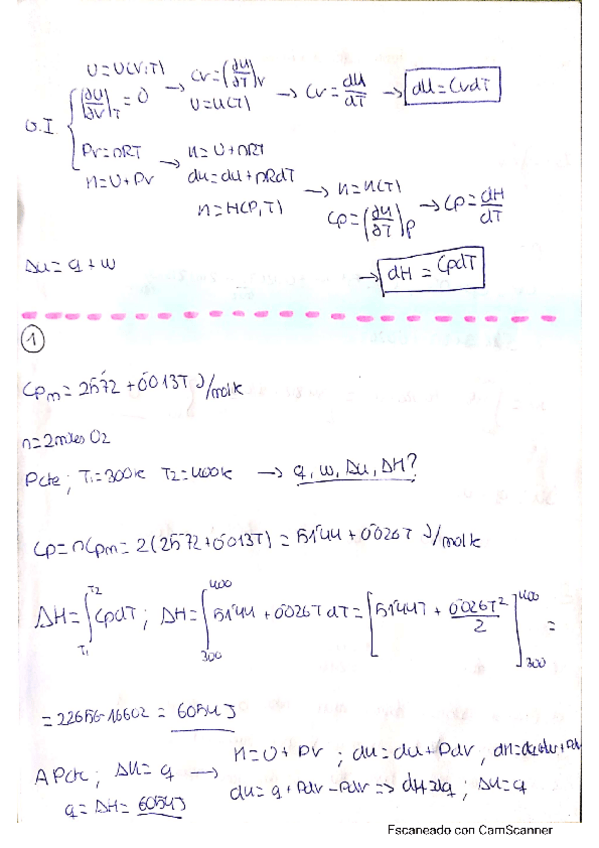 U=U(V,T) → Cv=(∂U/∂T)v → Cv=dU/dT → dU=CvdT
G.I. (∂U/∂V)T = 0 U=U(T)
PV=nRT → H=U+nRT
H=U+PV dH=dU+nRdT → H=H(T)
H=H(P,T) Cp=(∂H/∂T)p → Cp=dH/dT
ΔU=q+w → dH=CpdT
1
Cpm=25'72+0'013T J/molk
n=2moles O2
Pcte; T1=300k T2=400k → q, w, ΔU, ΔH?
Cp=nCpm=2(25'72+0'013T)=51'44+0'026T J/molk
ΔH=∫T1 T2 CpdT; ΔH=∫300 400 51'44+0'026T dT=[51'44T+0'026T²/2]300 400=
=22656-16602=6054J
A Pcte; ΔH=q → H=U+PV; dH=dU+PdV,
dH=q+PdV-PdV => dH=dq; ΔH=q
q=ΔH=6054J
Escaneado con CamScanner